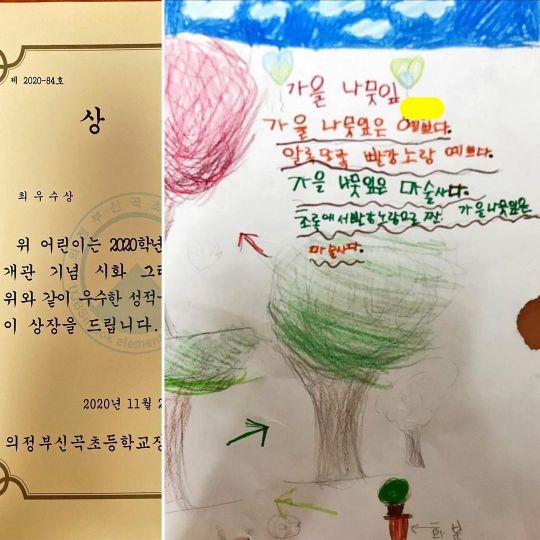 제 2020-84호
상
최우수상
위 어린이는 2020학년
개관 기념 시화 그리
위와 같이 우수한 성적
이 상장을 드립니다.
2020년 11월 2
의정부신곡초등학교장
가을 나뭇잎
가을 나뭇잎은 예쁘다.
알록달록 빨강노랑 예쁘다.
가을 나뭇잎은 마술사다.
초록에서빨강노랑으로 짠 가을나뭇잎은
마술사다.
화분